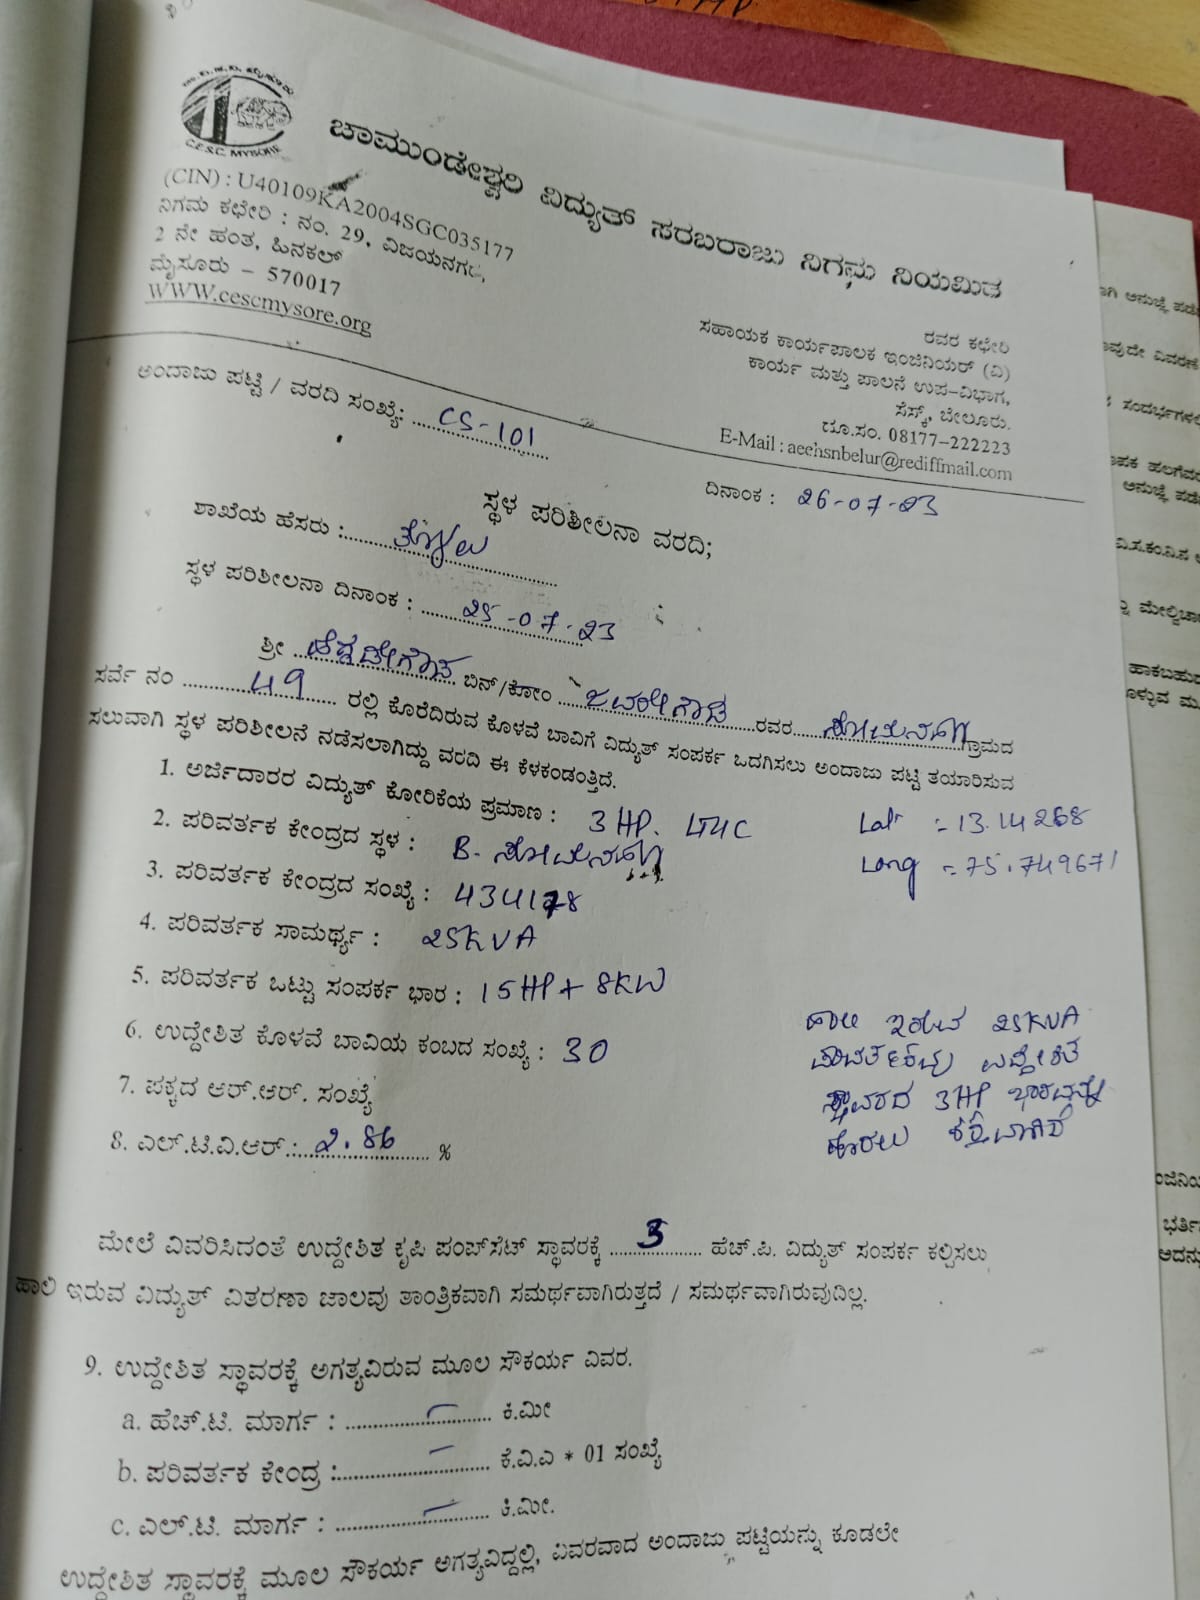 C.E.S.C. MYSORE
ಚಾಮುಂಡೇಶ್ವರಿ ವಿದ್ಯುತ್ ಸರಬರಾಜು ನಿಗಮ ನಿಯಮಿತ
(CIN) : U40109KA2004SGC035177
ನಿಗಮ ಕಛೇರಿ : ನಂ. 29, ವಿಜಯನಗರ,
2 ನೇ ಹಂತ, ಹಿನಕಲ್
ಮೈಸೂರು – 570017
WWW.cescmysore.org
ರವರ ಕಛೇರಿ
ಸಹಾಯಕ ಕಾರ್ಯಪಾಲಕ ಇಂಜಿನಿಯರ್ (ವಿ)
ಕಾರ್ಯ ಮತ್ತು ಪಾಲನೆ ಉಪ-ವಿಭಾಗ,
ಸೆಸ್ಕ್, ಬೇಲೂರು.
ದೂ.ಸಂ. 08177-222223
E-Mail : aeehsnbelur@rediffmail.com
ಅಂದಾಜು ಪಟ್ಟಿ / ವರದಿ ಸಂಖ್ಯೆ: CS-101
ದಿನಾಂಕ : 26-07-23
ಸ್ಥಳ ಪರಿಶೀಲನಾ ವರದಿ;
ಶಾಖೆಯ ಹೆಸರು :
ಸ್ಥಳ ಪರಿಶೀಲನಾ ದಿನಾಂಕ : 25-07-23
ಶ್ರೀ ಬಿನ್/ಕೋಂ ಜವರೇಗೌಡ ರವರ ಗ್ರಾಮದ
ಸರ್ವೆ ನಂ 49 ರಲ್ಲಿ ಕೊರೆದಿರುವ ಕೊಳವೆ ಬಾವಿಗೆ ವಿದ್ಯುತ್ ಸಂಪರ್ಕ ಒದಗಿಸಲು ಅಂದಾಜು ಪಟ್ಟಿ ತಯಾರಿಸುವ
ಸಲುವಾಗಿ ಸ್ಥಳ ಪರಿಶೀಲನೆ ನಡೆಸಲಾಗಿದ್ದು ವರದಿ ಈ ಕೆಳಕಂಡಂತ್ತಿದೆ.
1. ಅರ್ಜಿದಾರರ ವಿದ್ಯುತ್ ಕೋರಿಕೆಯ ಪ್ರಮಾಣ : 3 HP.
Lat = 13.14268
2. ಪರಿವರ್ತಕ ಕೇಂದ್ರದ ಸ್ಥಳ : B.
Long = 75.749671
3. ಪರಿವರ್ತಕ ಕೇಂದ್ರದ ಸಂಖ್ಯೆ : 434178
4. ಪರಿವರ್ತಕ ಸಾಮರ್ಥ್ಯ : 25KVA
5. ಪರಿವರ್ತಕ ಒಟ್ಟು ಸಂಪರ್ಕ ಭಾರ : 15HP + 8KW
6. ಉದ್ದೇಶಿತ ಕೊಳವೆ ಬಾವಿಯ ಕಂಬದ ಸಂಖ್ಯೆ : 30
7. ಪಕ್ಕದ ಆರ್.ಆರ್. ಸಂಖ್ಯೆ
8. ಎಲ್.ಟಿ.ವಿ.ಆರ್.: 2.86 %
ಹಾಲಿ ಇರುವ 25KVA
ಪರಿವರ್ತಕವು ಉದ್ದೇಶಿತ
ಸ್ಥಾವರದ 3HP ಭಾರವನ್ನು
ಹೊರಲು ಶಕ್ತವಾಗಿದೆ
ಮೇಲೆ ವಿವರಿಸಿದಂತೆ ಉದ್ದೇಶಿತ ಕೃಷಿ ಪಂಪ್‌ಸೆಟ್ ಸ್ಥಾವರಕ್ಕೆ 3 ಹೆಚ್.ಪಿ. ವಿದ್ಯುತ್ ಸಂಪರ್ಕ ಕಲ್ಪಿಸಲು
ಹಾಲಿ ಇರುವ ವಿದ್ಯುತ್ ವಿತರಣಾ ಜಾಲವು ತಾಂತ್ರಿಕವಾಗಿ ಸಮರ್ಥವಾಗಿರುತ್ತದೆ / ಸಮರ್ಥವಾಗಿರುವುದಿಲ್ಲ.
9. ಉದ್ದೇಶಿತ ಸ್ಥಾವರಕ್ಕೆ ಅಗತ್ಯವಿರುವ ಮೂಲ ಸೌಕರ್ಯ ವಿವರ.
a. ಹೆಚ್.ಟಿ. ಮಾರ್ಗ : – ಕಿ.ಮೀ
b. ಪರಿವರ್ತಕ ಕೇಂದ್ರ : – ಕೆ.ವಿ.ಎ * 01 ಸಂಖ್ಯೆ
c. ಎಲ್.ಟಿ. ಮಾರ್ಗ : – ಕಿ.ಮೀ.
ಉದ್ದೇಶಿತ ಸ್ಥಾವರಕ್ಕೆ ಮೂಲ ಸೌಕರ್ಯ ಅಗತ್ಯವಿದ್ದಲ್ಲಿ, ವಿವರವಾದ ಅಂದಾಜು ಪಟ್ಟಿಯನ್ನು ಕೂಡಲೇ